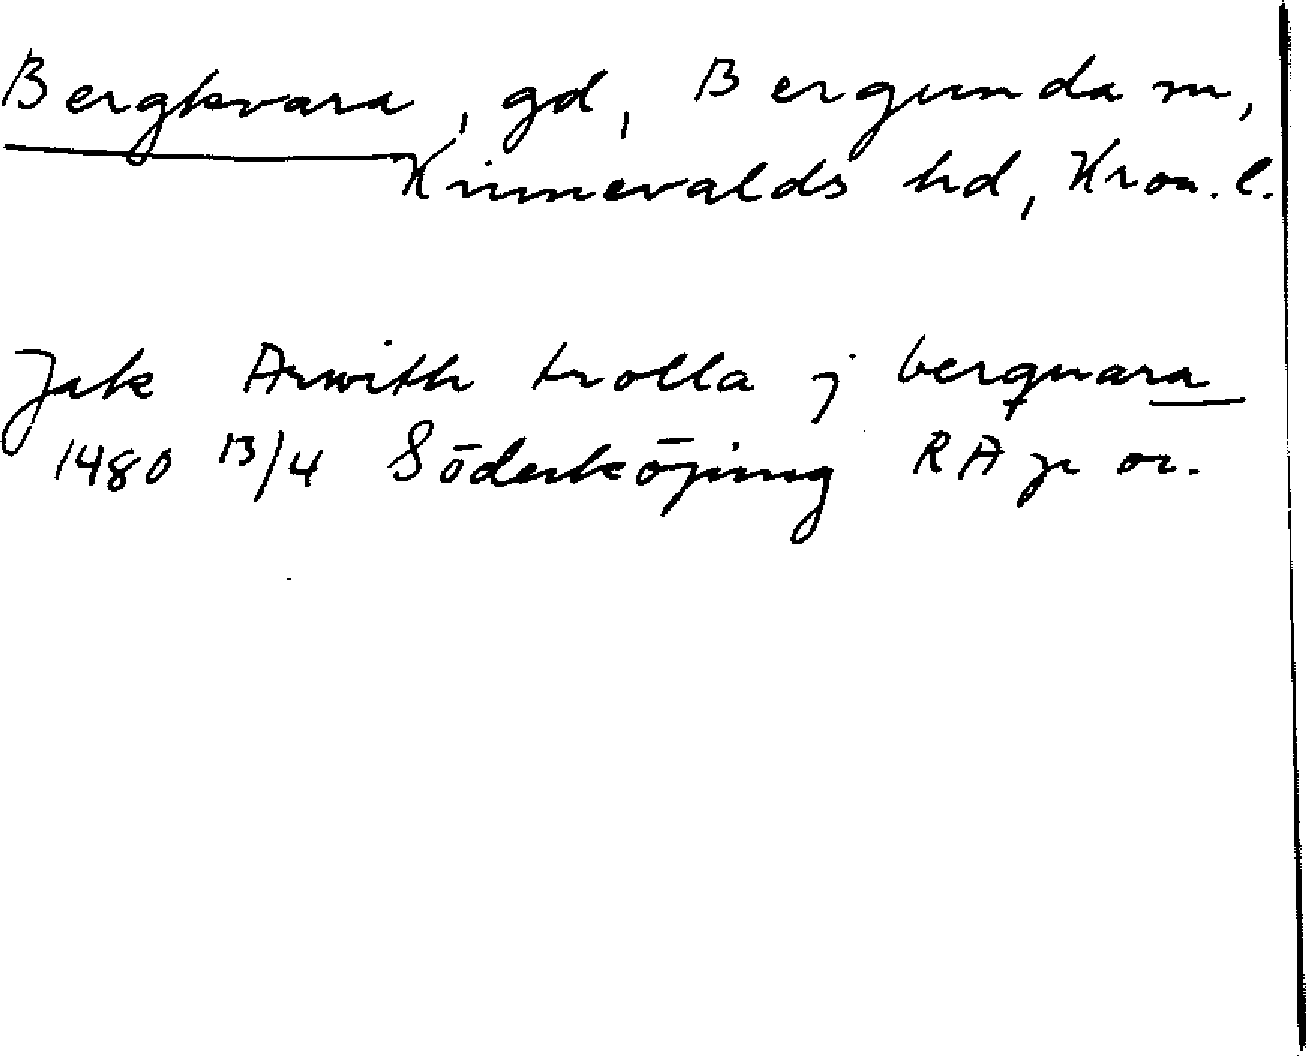 Bergkvara, gd, Bergunda sn,
Kinnevalds hd, Kron. l.
Jak Arwith trolla j berquara
1480 13/4 Söderköping RA p or.